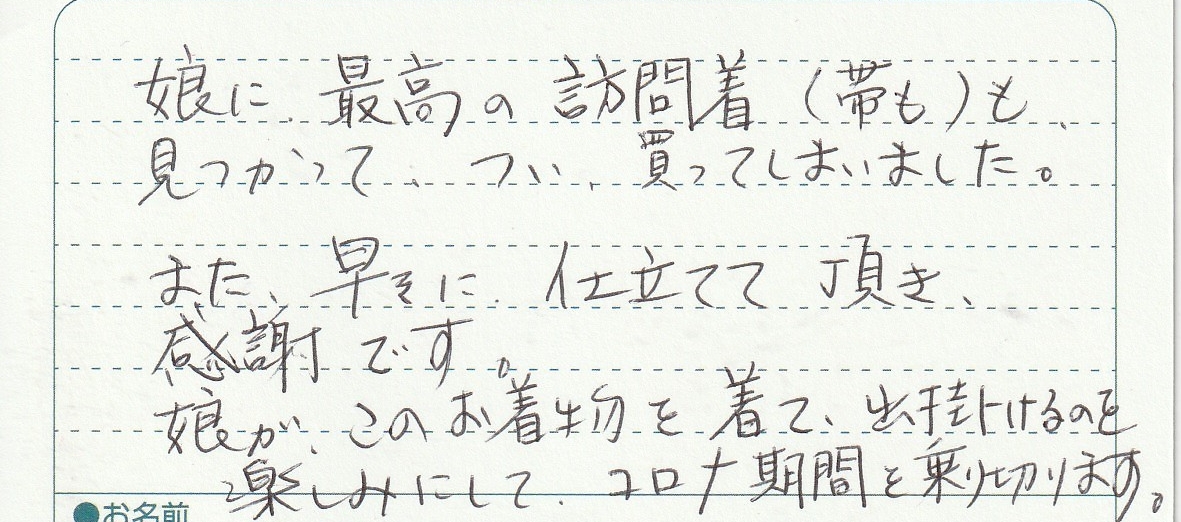 娘に、最高の訪問着(帯も)も、
見つかって、つい、買ってしまいました。
また、早々に、仕立てて頂き、
感謝です。
娘が、このお着物を着て、出掛けるのを
楽しみにして、コロナ期間を乗り切ります。
●お名前